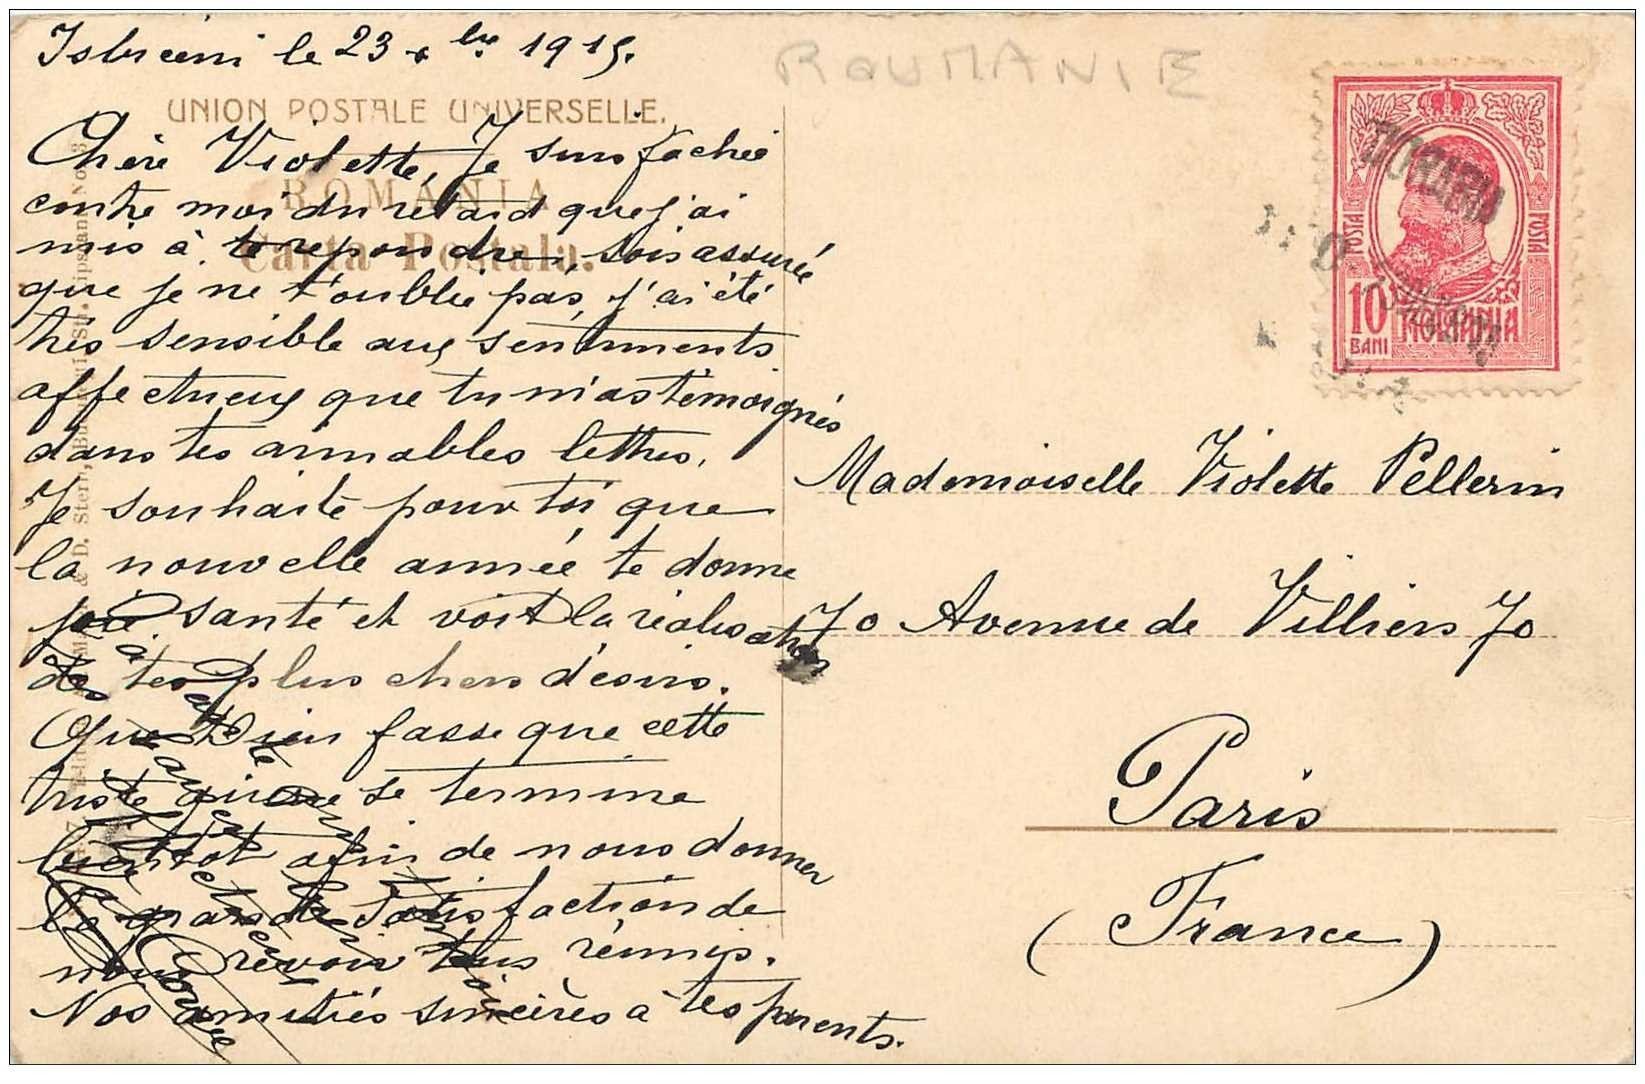 Isbiceni le 23 xbre 1915.
ROUMANIE
UNION POSTALE UNIVERSELLE.
ROMANIA
Carta Postala.
Chère Violette, Je suis fachée
contre moi du retard que j'ai
mis à te repondre, sois assurée
que je ne t'oublie pas, j'ai été
très sensible aux sentiments
affectueux que tu m'as témoignés
dans tes aimables lettres.
Je souhaite pour toi que
la nouvelle année te donne
joie santé et voir la réalisation
de tes plus chers désirs.
Que Dieu fasse que cette
triste guerre se termine
bientot afin de nous donner
la grande satisfaction de
nous revoir tous réunis.
Nos amitiés sincères à tes parents.
POSTA
POSTA
10
BANI
ROMANIA
Mademoiselle Violette Pellerin
70 Avenue de Villiers 70
Paris
(France)